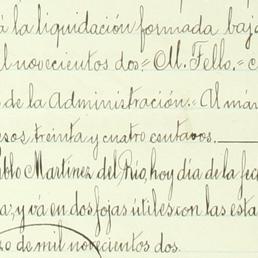 á la liquidación formada bajo
novecientos dos.=M. Tello.=
de la Administración.=Umár
esos, treinta y cuatro centavos.
blo Martínez del Río, hoy día de la fec
va en dos fojas útiles con las esta
zo de mil novecientos dos.